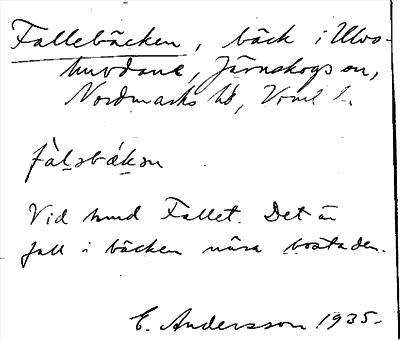 Fallebäcken, bäck i Ulvs-
huvdane, Järnskogs sn,
Nordmarks hd, Vrml l.
fàlsbǽkən
Vid hmd Fallet. Det är
fall i bäcken nära bostaden.
E. Andersson 1935.